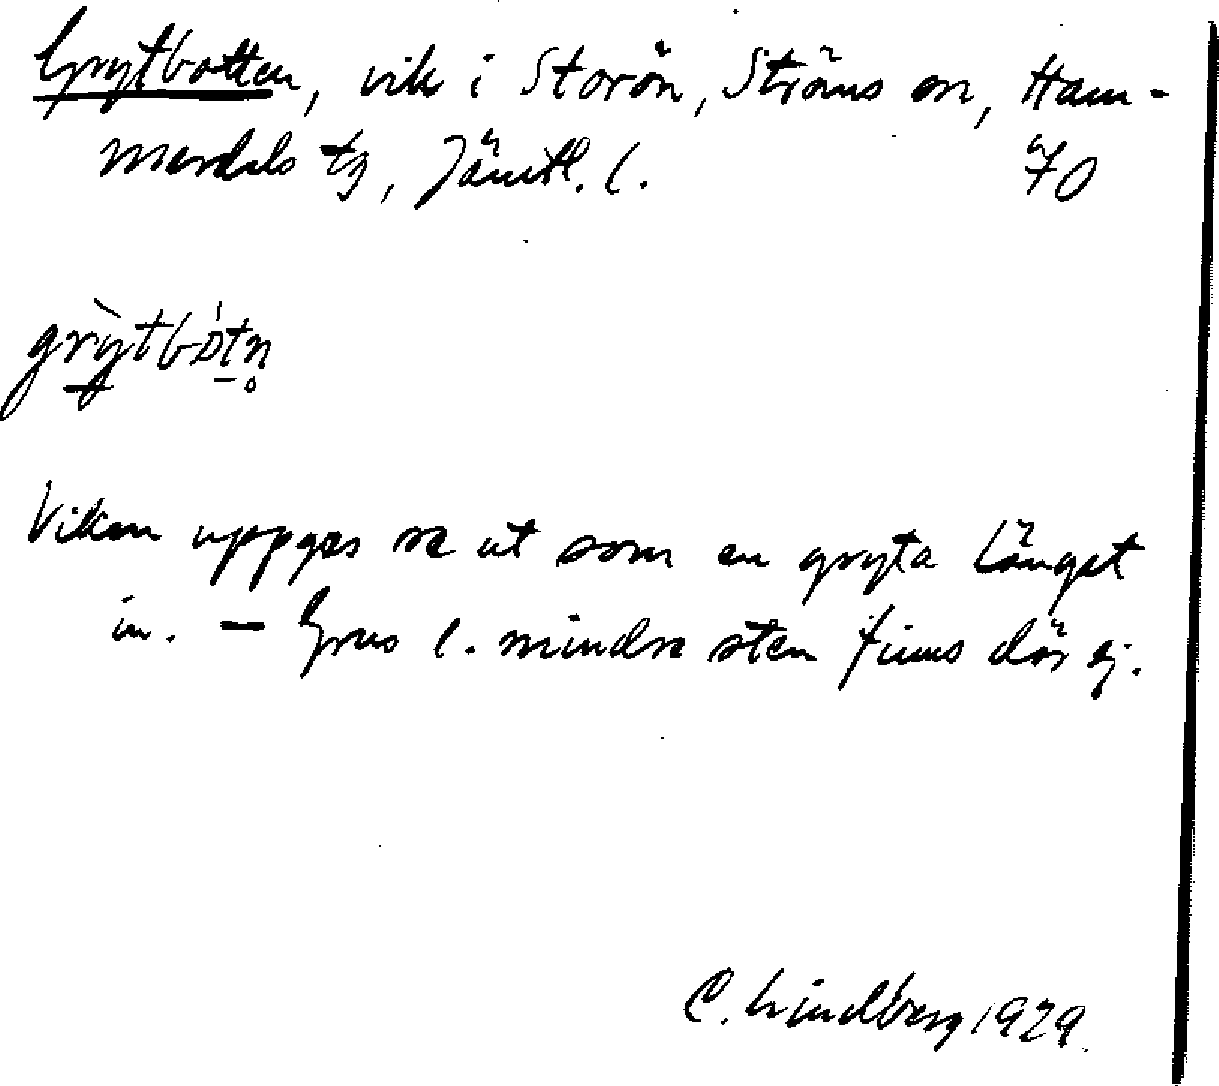 Grytbotten, vik i Storön, Ströms sn, Ham-
merdals tg, Jämtl. l. 70
grỳtbótn̥
Viken uppges se ut som en gryta längst
in. — Grus l. mindre sten finns där ej.
C. Lindberg 1929.